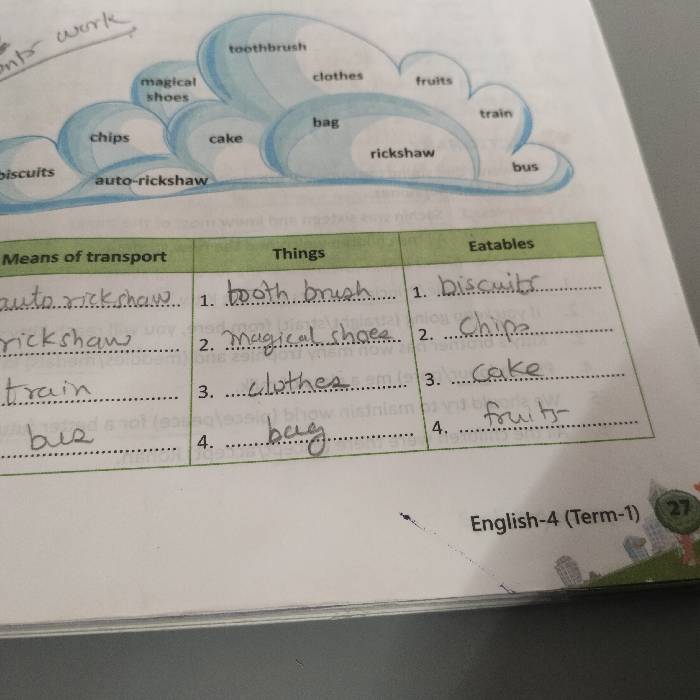 work
toothbrush
magical
shoes
clothes
fruits
train
chips
cake
bag
rickshaw
bus
biscuits
auto-rickshaw
Means of transport Things Eatables
auto rickshaw 1. tooth brush 1. biscuits
rickshaw 2. magical shoes 2. Chips
train 3. clothes 3. cake
bus 4. bag 4. fruits
English-4 (Term-1) 27